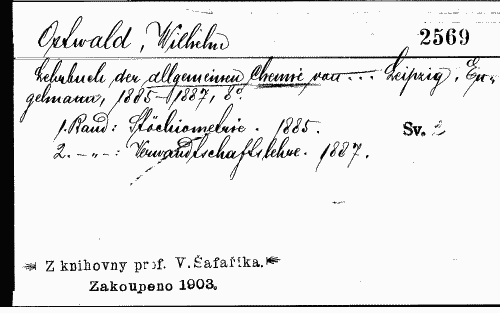 Ostwald, Wilhelm 2569
Lehrbuch der allgemeinen Chemie von ... Leipzig, En-
gelmann, 1885-1887, 8°.
1. Band: Stöchiometrie. 1885. Sv. 2
2. -„-: Verwandtschaftslehre. 1887.
Z knihovny prof. V. Šafaříka.
Zakoupeno 1903.